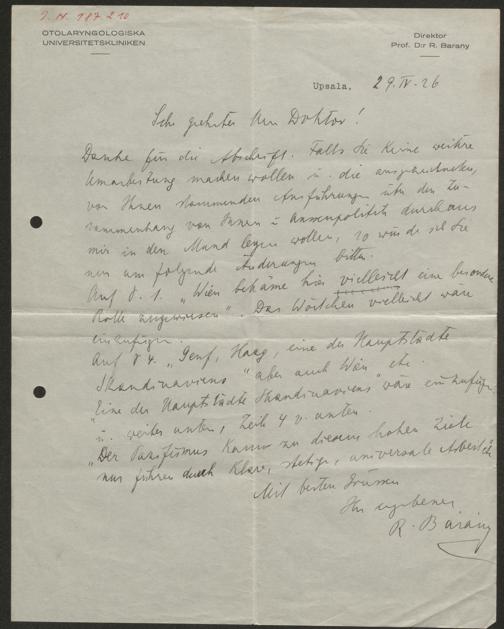 I.N. 187 210
OTOLARYNGOLOGISKA
UNIVERSITETSKLINIKEN
Direktor
Prof. D:r R. Barany
Upsala, 29.IV.26
Sehr geehrter Herr Doktor!
Danke für die Abschrift. Falls Sie keine weitere
Umarbeitung machen wollen u. die ausgezeichneten,
von Ihnen stammenden Ausführungen über den Zu-
sammenhang von Innen u Aussenpolitik durchaus
mir in den Mund legen wollen, so würde ich Sie
nur um folgende Änderungen bitten.
Auf S. 1. „Wien bekäme hier vielleicht eine besondere
Rolle zugewiesen". Das Wörtchen vielleicht wäre
einzufügen.
Auf S 4. „Genf, Haag, eine der Hauptstädte
Skandinaviens" aber auch Wien" etc.
"Eine der Hauptstädte Skandinaviens" wäre einzufügen
u. weiter unten, Zeile 4 v. unten
„Der Pazifismus kann zu diesem hohen Ziele
nur führen durch klare, stetige, universale Arbeit."
Mit besten Grüssen
Ihr ergebener
R. Bárány